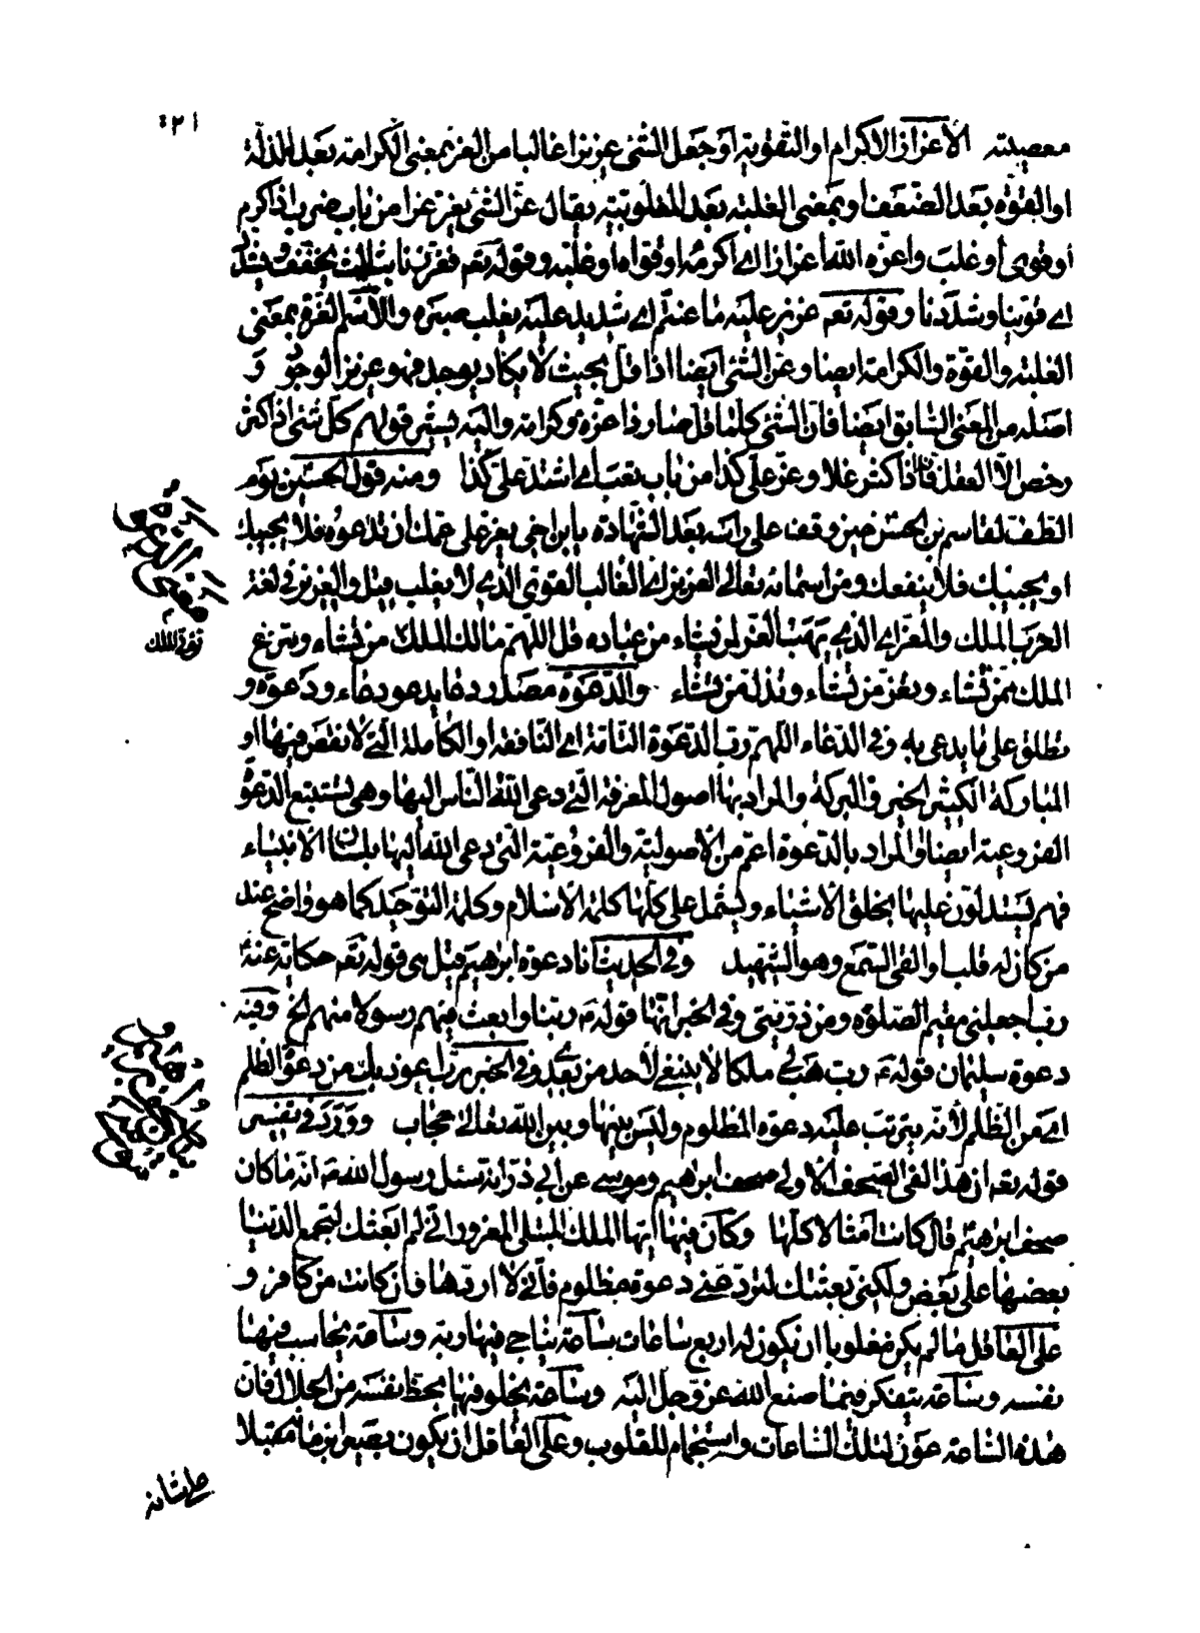 معصيته الاعزاز الاكرام او التقوية او جعل الشئ عزيزا غالبا من العز بمعنى الكرامة بعد المذلة
او القوة بعد الضعف او بمعنى الغلبة بعد المغلوبية يقال عز الشئ يعز عزا من باب ضرب اذا كرم
او قوى او غلب واعزه الله اعزازا اى اكرمه او قواه او غلبه وقوله تعم فعززنا بثالث يخفف ويشدد
اى قوينا وشددنا وقوله تعم عزيز عليه ما عنتم اى شديد عليه يغلب صبره والاسم العزة بمعنى
الغلبة والقوة والكرامة ايضا وعز الشئ ايضا اذا قل بحيث لا يكاد يوجد فهو عزيز الوجود و
اصله من المعنى السابق ايضا فان الشئ كلما قل صار ذا عزة وكرامة واليه يشير قولهم كل شئ اذا كثر
رخص الا العقل فانه اذا كثر غلا وعز على كذا من باب تعب اى اشتد على كذا ومنه قول الحسين يوم
الطف لقاسم بن الحسن حين وقف على راسه بعد الشهادة يا بن اخى يعز على عمك ان تدعوه فلا يجيبك
او يجيبك فلا ينفعك ومن اسمائه تعالى العزيز اى الغالب القوى الذى لا يغلب قيل والعزيز فى لغة
العرب الملك والمعز اى الذى يهب العز لمن يشاء من عباده قل اللهم مالك الملك من تشاء وتنزع
الملك ممن تشاء وتعز من تشاء وتذل من تشاء والدعوة مصدر دعا يدعو دعاء ودعوة و
تطلق على ما يدعى به وفى الدعاء اللهم رب الدعوة التامة اى النافعة او الكاملة التى لا نقص فيها او
المباركة الكثير الخير والبركة والمراد بها اصول المعرفة التى دعى الله الناس اليها وهى تستتبع الدعوة
الفروعية ايضا والمراد بالدعوة اعم من الاصولية والفروعية التى دعى الله اليها بلسان الانبياء
فهم يستدلون عليها بخلق الاشياء ويشمل على كلها كلمة الاسلام وكلمة التوحيد كما هو واضح عند
من كان له قلب او القى السمع وهو الشهيد وفى الحديث انا دعوة ابرهيم قيل هى قوله تعم حكاية عنه
رب اجعلنى مقيم الصلوة ومن ذريتى وفى الخبر انها قوله ربنا وابعث فيهم رسولا منهم الخ وفيه
دعوة سليمان قوله رب هب لى ملكا لا ينبغى لاحد من بعدى وفى الخبر رب اعوذ بك من دعوة الظلم
اى من الظلم لانه يترتب عليه دعوة المظلوم وليس بينها وبين الله تعالى حجاب وورد فى تفسير
قوله تعم ان هذا لفى الصحف الاولى صحف ابرهيم وموسى عن ابى ذر انه سئل رسول الله انه ما كان
صحف ابرهيم قال كانت امثالا كلها وكان فيها ايها الملك المبتلى المغرور انى لم ابعثك لتجمع الدنيا
بعضها على بعض ولكنى بعثتك لترد عنى دعوة مظلوم فانى لا اردها وان كانت من كافر و
على العاقل ما لم يكن مغلوبا ان يكون له اربع ساعات ساعة يناجى فيها ربه وساعة يحاسب فيها
نفسه وساعة يتفكر فيما صنع الله عز وجل اليه وساعة يخلو فيها بحظ نفسه من الحلال فان
هذه الساعة عون لتلك الساعات واستجمام للقلوب وعلى العاقل ان يكون بصيرا بزمانه مقبلا
تؤتى الملك
على شانه